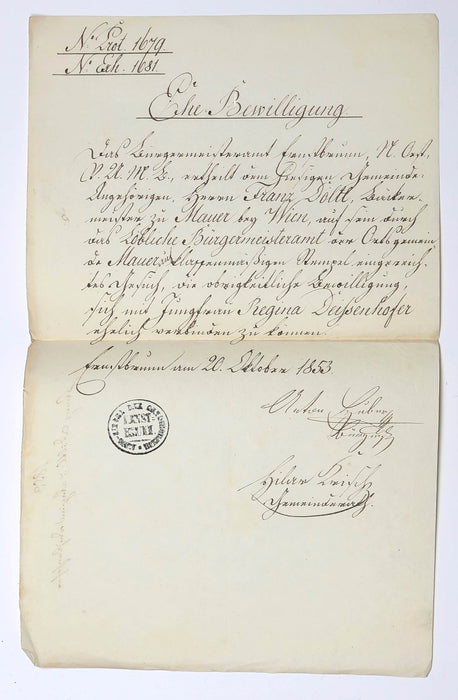 N: Prot. 1679.
N: Exh. 1681.
Ehe Bewilligung
Das Bürgermeisteramt Ernstbrunn, N. Oest.
V. U. M. B., ertheilt dem hiesigen Gemeinde-
Angehörigen, Herrn Franz Döltl, Bäcker-
meister zu Mauer bey Wien, auf sein durch
das Löbliche Bürgermeisteramt der Ortsgemein-
de Mauer klassenmäßigen Stempel eingereich-
tes Gesuch, die obrigkeitliche Bewilligung,
sich mit Jungfrau Regina Deissenhofer
ehelich verbinden zu können.
Ernstbrunn am 20. Oktober 1853.
Anton Huber
Hilar
Gemeinderath.
ERNST-
BRUNN